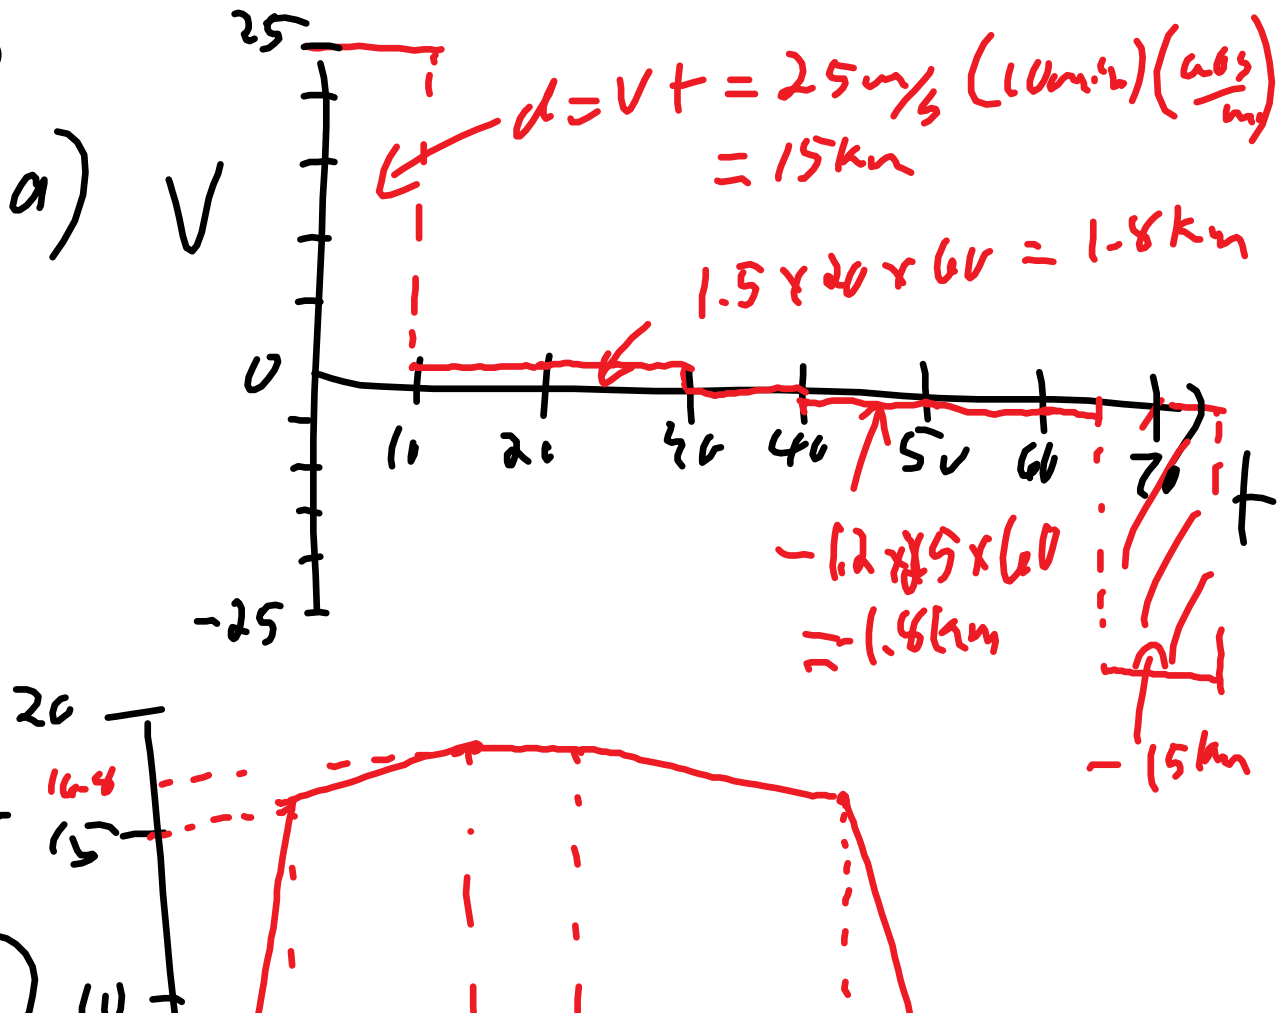 25
d = vt = 25 m/s (10 min) (60s/min)
= 15 km
a) V
1.5 x 20 x 60 = 1.8 km
0
10 20 30 40 50 60 70 t
-1.2 x 25 x 60
= -1.8 km
-25
-15 km
20
16.8
15
10